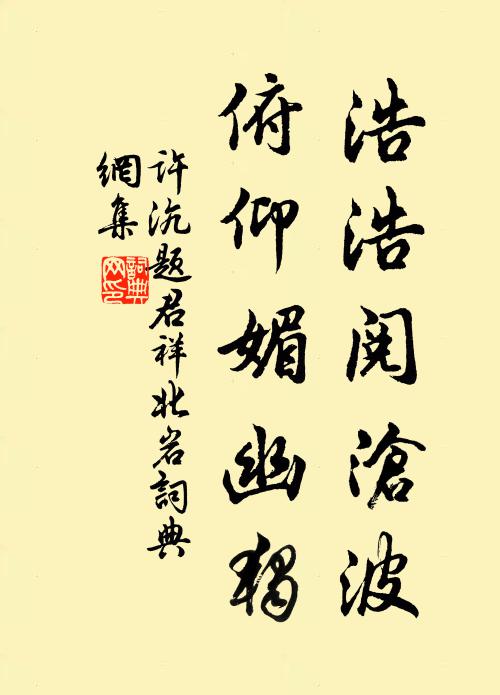 浩浩閱滄波
俯仰媚幽獨
許沆題君祥北岩詞典
網集
詞典網印